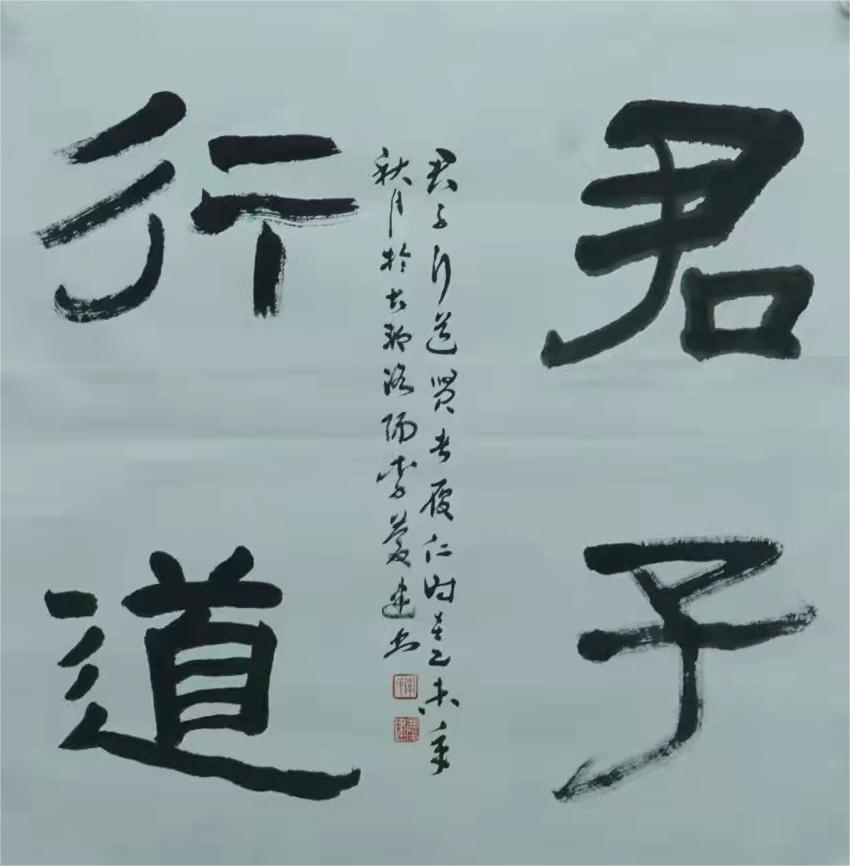 君子
行道
君子行道贤者履仁时在乙未年
秋月於古都洛陽李建书